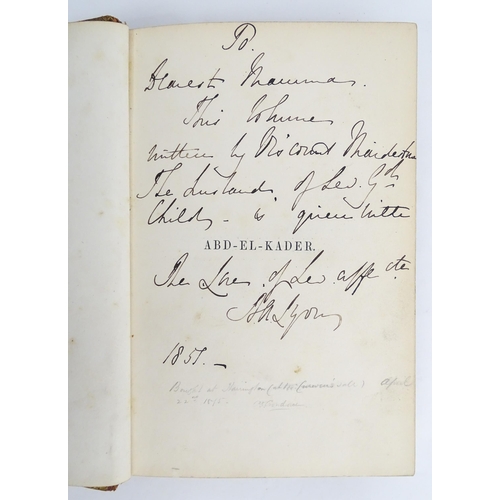 To.
Dearest Mamma.
This Volume
written by Viscount Maidstone
The husband of her Gd
Child - is given with
ABD-EL-KADER.
The Love of her affecte.
Lyons
1851.-
Bought at
April